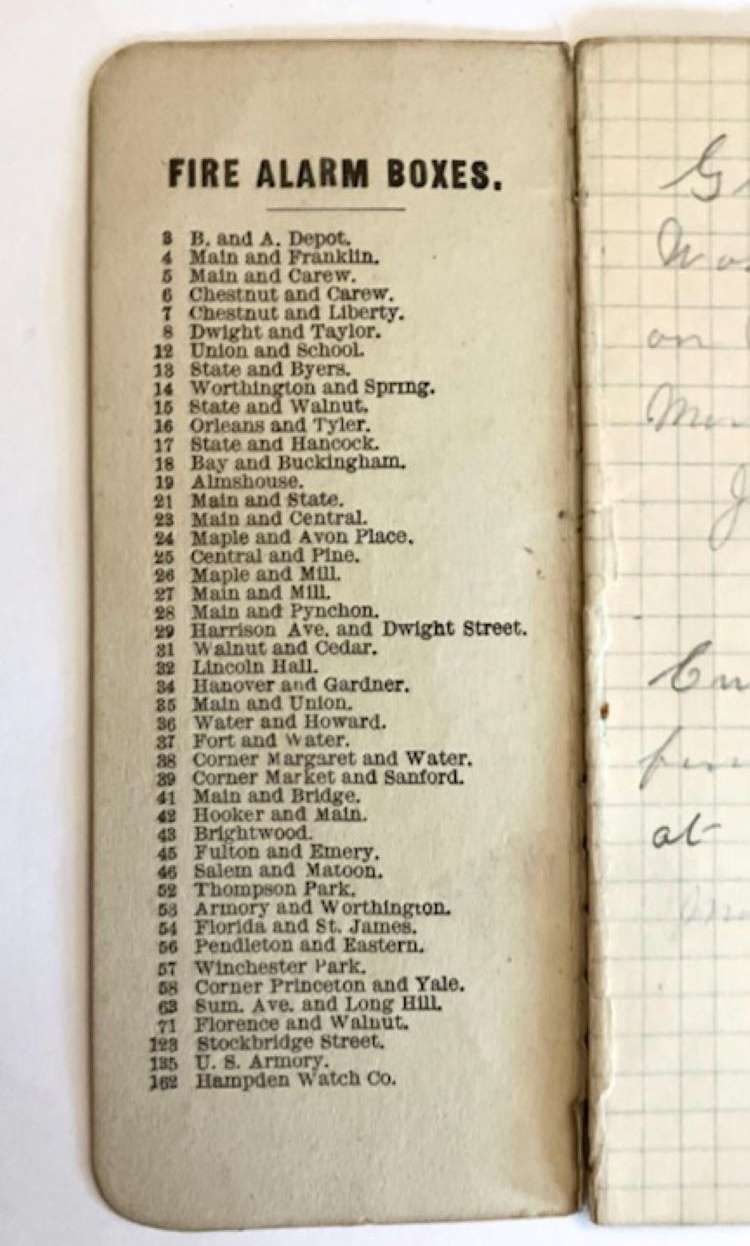 FIRE ALARM BOXES.
3 B. and A. Depot.
4 Main and Franklin.
5 Main and Carew.
6 Chestnut and Carew.
7 Chestnut and Liberty.
8 Dwight and Taylor.
12 Union and School.
13 State and Byers.
14 Worthington and Spring.
15 State and Walnut.
16 Orleans and Tyler.
17 State and Hancock.
18 Bay and Buckingham.
19 Almshouse.
21 Main and State.
23 Main and Central.
24 Maple and Avon Place.
25 Central and Pine.
26 Maple and Mill.
27 Main and Mill.
28 Main and Pynchon.
29 Harrison Ave. and Dwight Street.
31 Walnut and Cedar.
32 Lincoln Hall.
34 Hanover and Gardner.
35 Main and Union.
36 Water and Howard.
37 Fort and Water.
38 Corner Margaret and Water.
39 Corner Market and Sanford.
41 Main and Bridge.
42 Hooker and Main.
43 Brightwood.
45 Fulton and Emery.
46 Salem and Matoon.
52 Thompson Park.
53 Armory and Worthington.
54 Florida and St. James.
56 Pendleton and Eastern.
57 Winchester Park.
58 Corner Princeton and Yale.
63 Sum. Ave. and Long Hill.
71 Florence and Walnut.
123 Stockbridge Street.
135 U. S. Armory.
162 Hampden Watch Co.
on
at